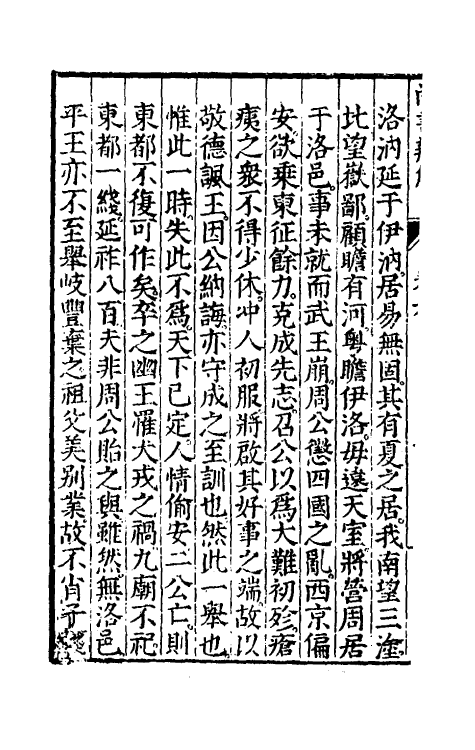 洛汭延于伊汭居易無固其有夏之居我南望三塗
北望嶽鄙顧瞻有河粤瞻伊洛毋遠天室將營周居
于洛邑事未就而武王崩周公懲四國之亂西京偏
安欲乗東征餘力克成先志召公以為大難初殄瘡
痍之衆不得少休冲人初服將啟其好事之端故以
敬德諷王因公納誨亦守成之至訓也然此一舉也
惟此一時失此不為天下已定人情偷安二公亡則
東都不復可作矣卒之幽王罹犬戎之禍九廟不祀
東都一綫延祚八百夫非周公貽之與雖然無洛邑
平王亦不至舉岐豐棄之祖父美别業故不肖子